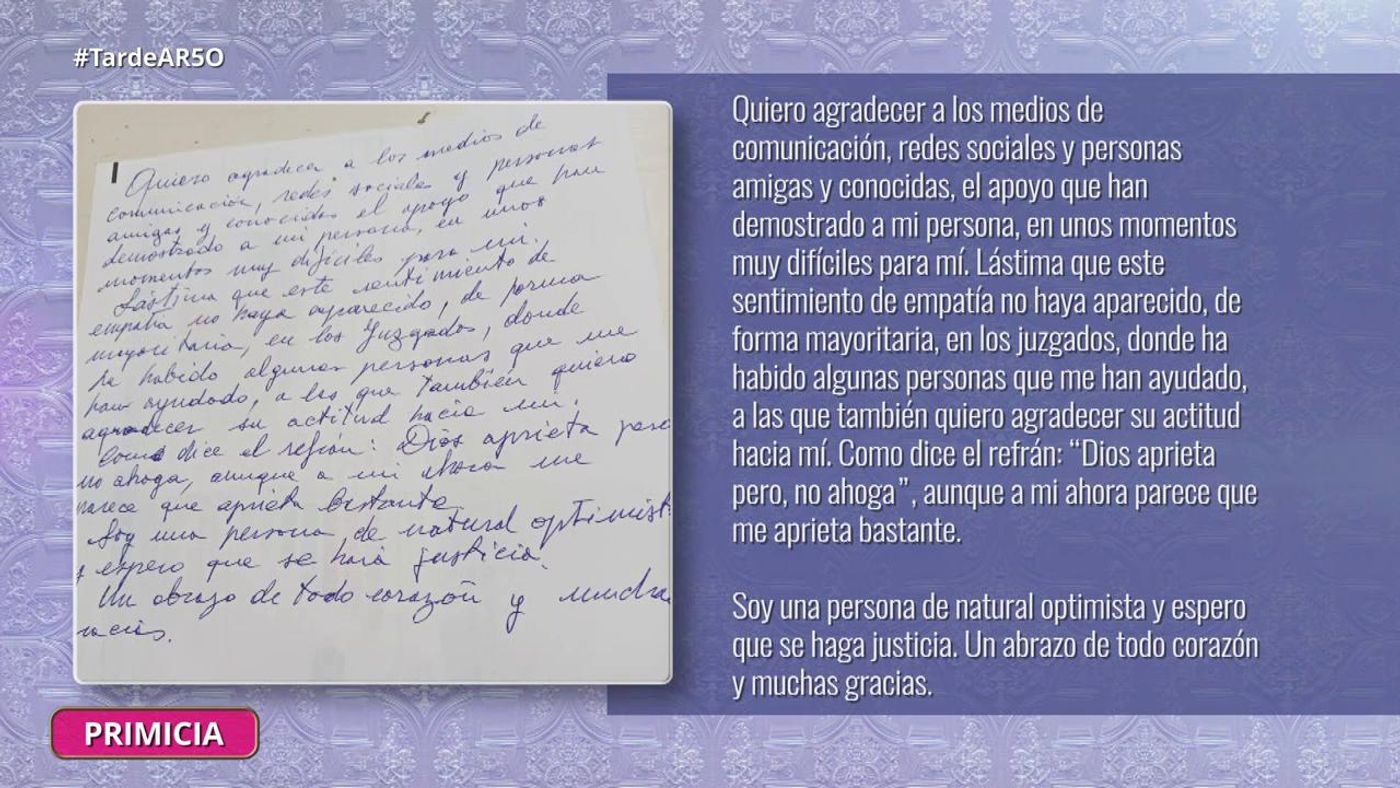 #TardeAR5O
Quiero agradecer a los medios de
comunicación, redes sociales y personas
amigas y conocidas el apoyo que han
demostrado a mi persona, en unos
momentos muy difíciles para mí.
Lástima que este sentimiento de
empatía no haya aparecido, de forma
mayoritaria, en los Juzgados, donde
ha habido algunas personas que me
han ayudado, a las que también quiero
agradecer su actitud hacia mi.
Como dice el refrán: Dios aprieta pero
no ahoga, aunque a mi ahora me
parece que aprieta bastante.
Soy una persona de natural optimist
y espero que se hará justicia.
Un abrazo de todo corazón y mucha
racias.
Quiero agradecer a los medios de
comunicación, redes sociales y personas
amigas y conocidas, el apoyo que han
demostrado a mi persona, en unos momentos
muy difíciles para mí. Lástima que este
sentimiento de empatía no haya aparecido, de
forma mayoritaria, en los juzgados, donde ha
habido algunas personas que me han ayudado,
a las que también quiero agradecer su actitud
hacia mí. Como dice el refrán: “Dios aprieta
pero, no ahoga”, aunque a mi ahora parece que
me aprieta bastante.
Soy una persona de natural optimista y espero
que se haga justicia. Un abrazo de todo corazón
y muchas gracias.
PRIMICIA